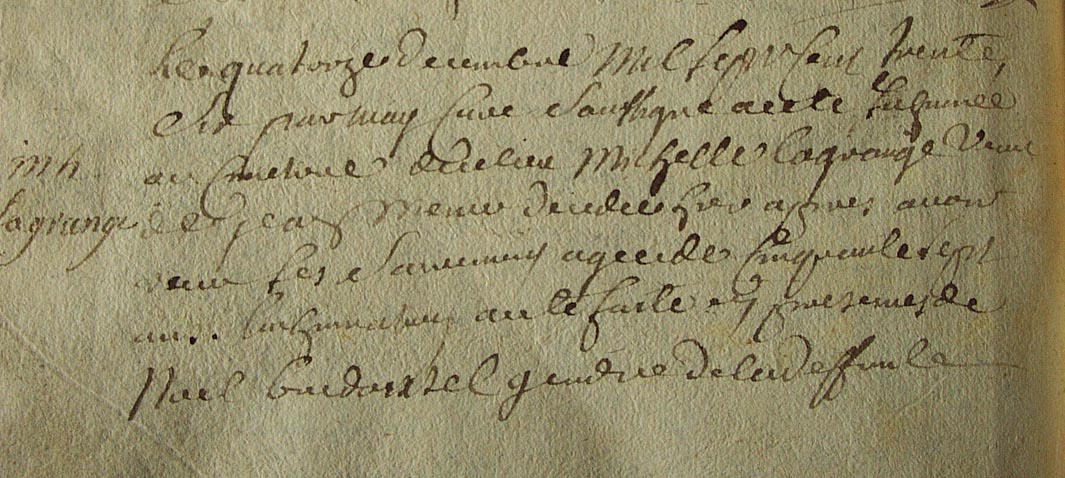 Le quatorze decembre mil sept cent trente
six par moy curé soussigné a eté inhumée
au cimetiere de ce lieu Michelle Lagrange veuve
inh.
Lagrange
de jean decedee hier apres avoir
recu les sacremens agee de cinquante sept
ans. L'inhumation a eté faite en presence de
Noel gendre de la deffunte